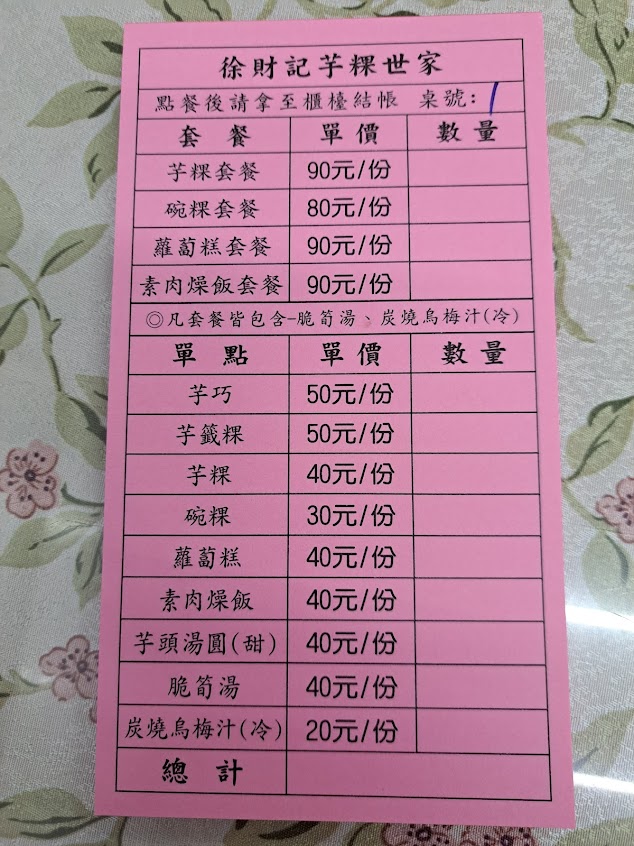 徐財記芋粿世家
點餐後請拿至櫃檯結帳 桌號: 1
套餐 單價 數量
芋粿套餐 90元/份
碗粿套餐 80元/份
蘿蔔糕套餐 90元/份
素肉燥飯套餐 90元/份
◎凡套餐皆包含-脆筍湯、炭燒烏梅汁(冷)
單點 單價 數量
芋巧 50元/份
芋籤粿 50元/份
芋粿 40元/份
碗粿 30元/份
蘿蔔糕 40元/份
素肉燥飯 40元/份
芋頭湯圓(甜) 40元/份
脆筍湯 40元/份
炭燒烏梅汁(冷) 20元/份
總計